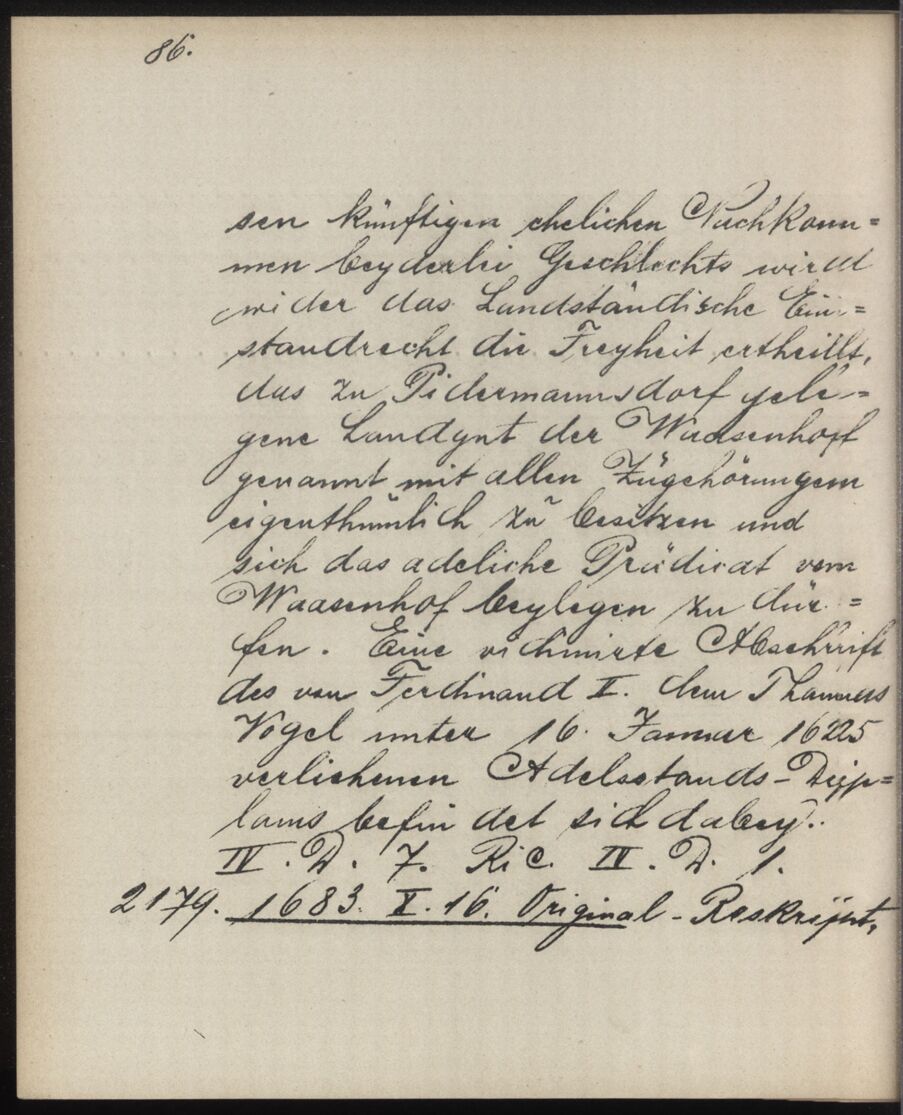 86.
sen künftigen ehelichen Nachkom=
men beyderlei Geschlechts wird
wider das Landständische Ein=
standrecht die Freyheit ertheillt,
das zu Pidermannsdorf gele=
gene Landgut der Waasenhoff
genannt mit allen Zügehörungen
eigenthümlich zu besitzen und
sich das adeliche Prädicat vom
Waasenhof beylegen zu dür=
fen. Eine vidimirte Abschrift
des von Ferdinand II. dem Thamas
Vogel unter 16. Januar 1625
verliehenen Adelsstands-Dipp=
loms befindet sich dabey.
IV. D. 7. Ric. IV. D. 1.
2179. 1683. X. 16. Original-Reskript,